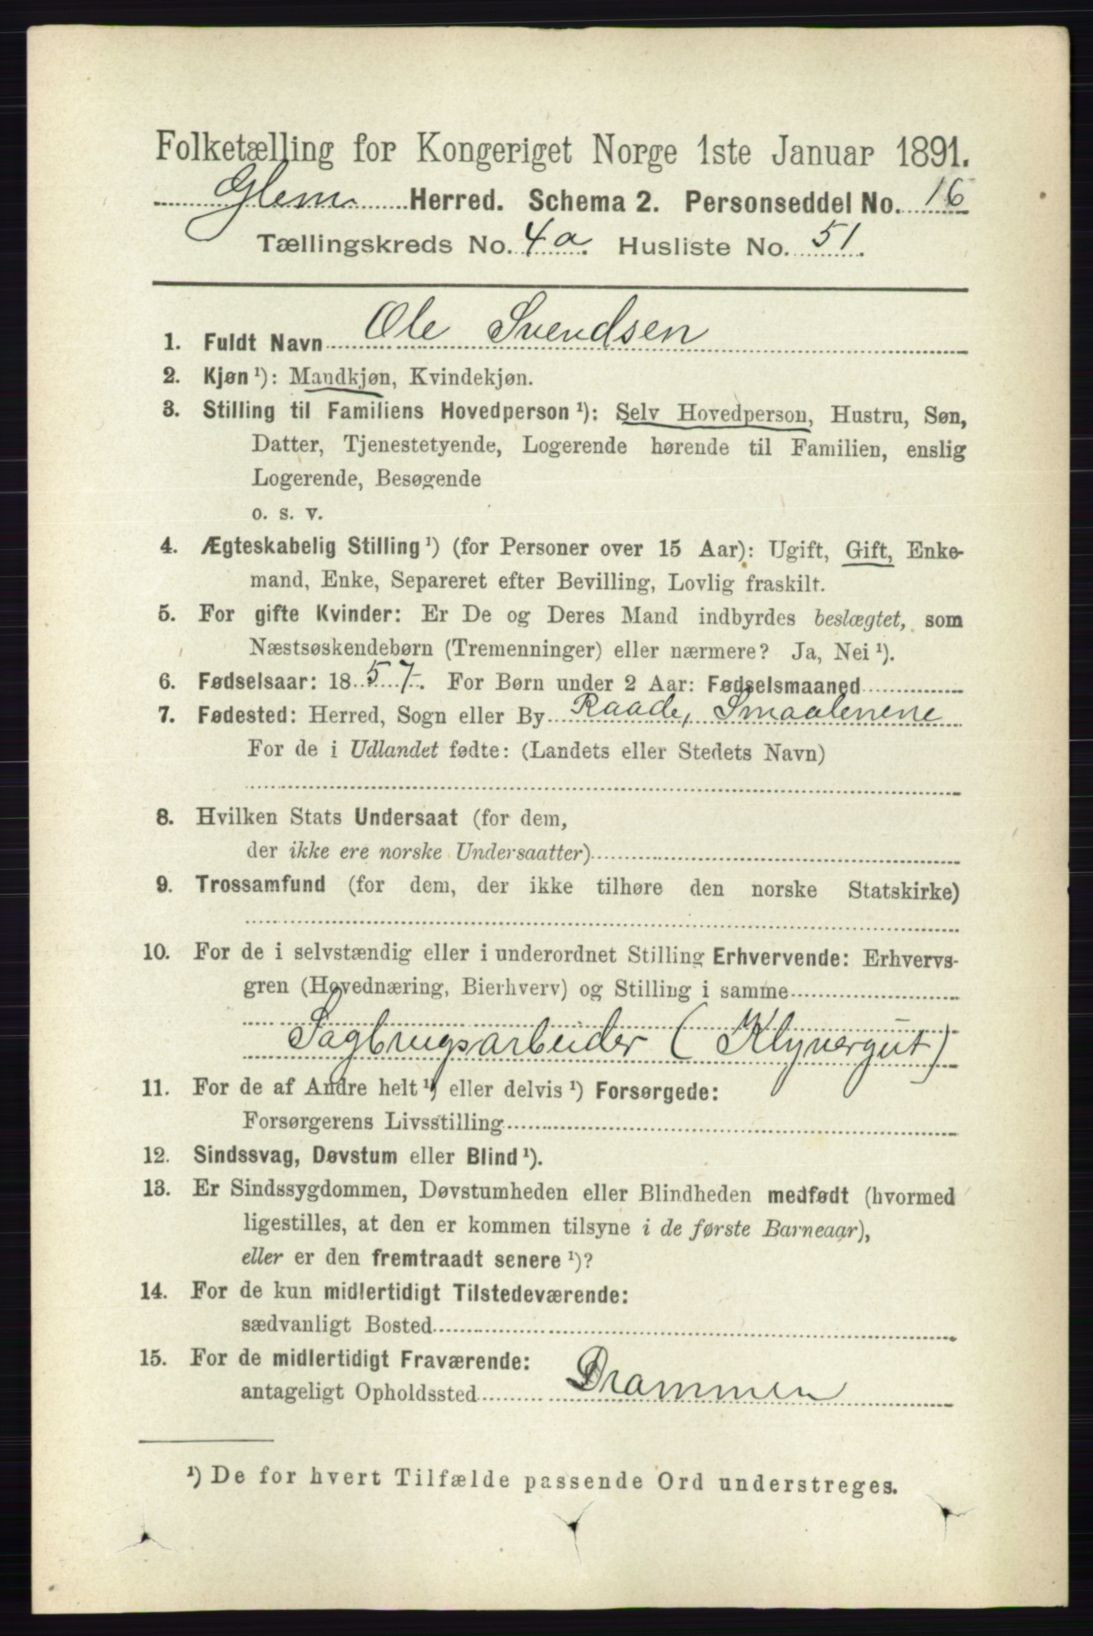 Folketælling for Kongeriget Norge 1ste Januar 1891.
Glem Herred. Schema 2. Personseddel No. 16
Tællingskreds No. 4a. Husliste No. 51.
1. Fuldt Navn Ole Svendsen
2. Kjøn ¹): Mandkjøn, Kvindekjøn.
3. Stilling til Familiens Hovedperson ¹): Selv Hovedperson, Hustru, Søn,
Datter, Tjenestetyende, Logerende hørende til Familien, enslig
Logerende, Besøgende
o. s. v.
4. Ægteskabelig Stilling ¹) (for Personer over 15 Aar): Ugift, Gift, Enke-
mand, Enke, Separeret efter Bevilling, Lovlig fraskilt.
5. For gifte Kvinder: Er De og Deres Mand indbyrdes beslægtet, som
Næstsøskendebørn (Tremenninger) eller nærmere? Ja, Nei ¹).
6. Fødselsaar: 1857. For Børn under 2 Aar: Fødselsmaaned
7. Fødested: Herred, Sogn eller By Raade, Smaalenene
For de i Udlandet fødte: (Landets eller Stedets Navn)
8. Hvilken Stats Undersaat (for dem,
der ikke ere norske Undersaatter)
9. Trossamfund (for dem, der ikke tilhøre den norske Statskirke)
10. For de i selvstændig eller i underordnet Stilling Erhvervende: Erhvervs-
gren (Hovednæring, Bierhverv) og Stilling i samme
Sagbrugsarbeider (Klyvergut)
11. For de af Andre helt ¹) eller delvis ¹) Forsørgede:
Forsørgerens Livsstilling
12. Sindssvag, Døvstum eller Blind ¹).
13. Er Sindssygdommen, Døvstumheden eller Blindheden medfødt (hvormed
ligestilles, at den er kommen tilsyne i de første Barneaar),
eller er den fremtraadt senere ¹)?
14. For de kun midlertidigt Tilstedeværende:
sædvanligt Bosted
15. For de midlertidigt Fraværende:
antageligt Opholdssted Drammen
¹) De for hvert Tilfælde passende Ord understreges.